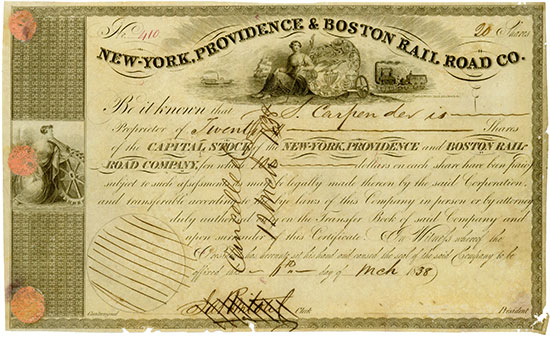 No. 410 20 Shares
NEW-YORK, PROVIDENCE & BOSTON RAIL ROAD CO.
Be it known that S. Carpender is
Proprietor of Twenty Shares
of the CAPITAL STOCK of the NEW-YORK, PROVIDENCE and BOSTON RAIL-
ROAD COMPANY, for which dollars on each share have been paid
subject to such assessments may be legally made thereon by the said Corporation
and transferable according laws of this Company in person or by attorney
duly authorized on the Transfer Book of said Company and
upon surrender of this Certificate. In Witness whereof the
President has hereunto set his hand and caused the seal of the said Company to be
affixed the day of Mch 1838
Cancelled 12 Mch 1838
Countersigned Clerk President